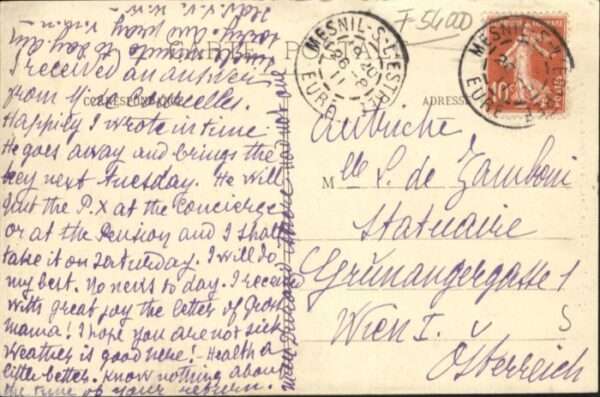 CARTE POSTALE
CORRESPONDANCE
ADRESSE
F 54000
MESNIL-S-L'ESTRÉE
EURE
26 -8
11
MESNIL-S-L'ESTRÉE
EURE
10
I received an answer
from
Happily I wrote in time
He goes away and brings the
key next Tuesday. He will
put the P.X at the Concierge
or at the Pension and I shall
take it on Saturday. I will do
my best. No news to day. I received
with great joy the letter of Gross
mama! I hope you are not sick
Weather is good here! - Health a
little better. Know nothing about
the time of your return.
Autriche
Mlle S. de Zamboni
Statuaire
Grünangergasse 1
Wien I.
Österreich
5